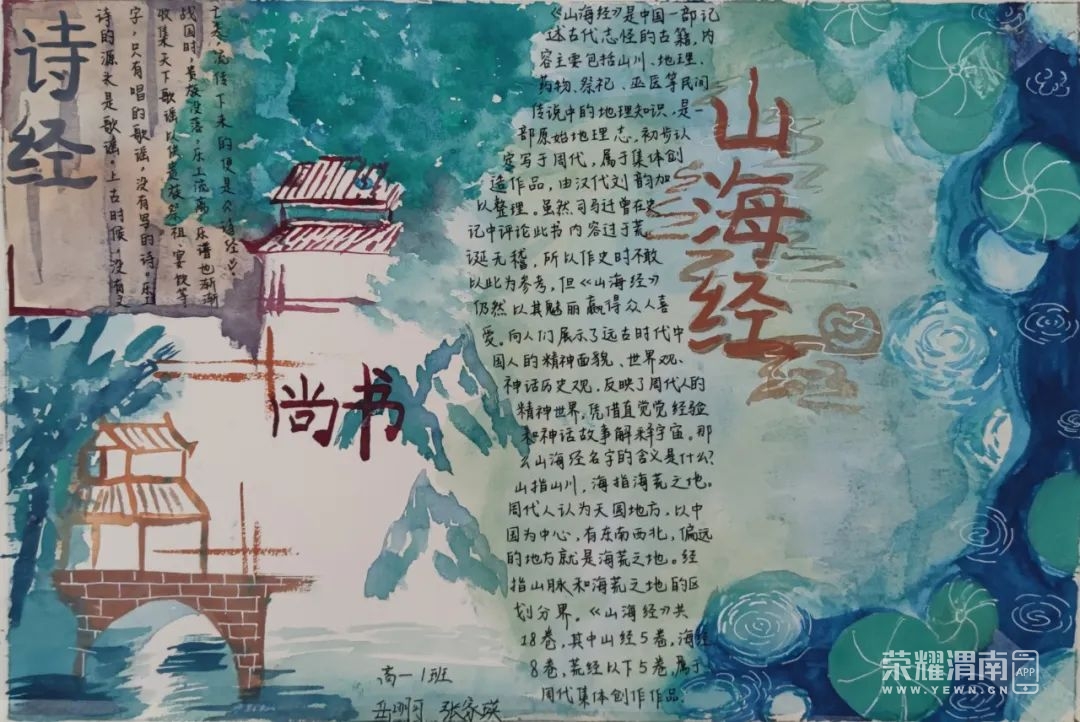 诗经
诗的源头是歌谣,上古时候,没有文
字,只有唱的歌谣,没有写的诗。乐工
收集天下歌谣以供贵族祭祖、宴饮等
战国时,贵族没落,乐工流离,乐谱也渐渐
亡失,流传下来的便是《诗经》。
尚书
山海经
《山海经》是中国一部记
述古代志怪的古籍,内
容主要包括山川、地理、
药物、祭祀、巫医等民间
传说中的地理知识,是一
部原始地理志,初步认
定写于周代,属于集体创
造作品,由汉代刘韵加
以整理。虽然司马迁曾在史
记中评论此书内容过于荒
诞无稽,所以作史时不敢
以此为参考,但《山海经》
仍然以其魅丽赢得众人喜
爱。向人们展示了远古时代中
国人的精神面貌、世界观、
神话历史观,反映了周代人的
精神世界,凭借直觉觉经验
和神话故事解释宇宙。那
么山海经名字的含义是什么?
山指山川,海指海荒之地。
周代人认为天圆地方,以中
国为中心,有东南西北,偏远
的地方就是海荒之地。经
指山脉和海荒之地的区
划分界。《山海经》共
18卷,其中山经5卷,海经
8卷,荒经以下5卷,属于
周代集体创作作品.
高一1班
岳明月 张家瑛
荣耀渭南 APP
WWW.YEWN.CN